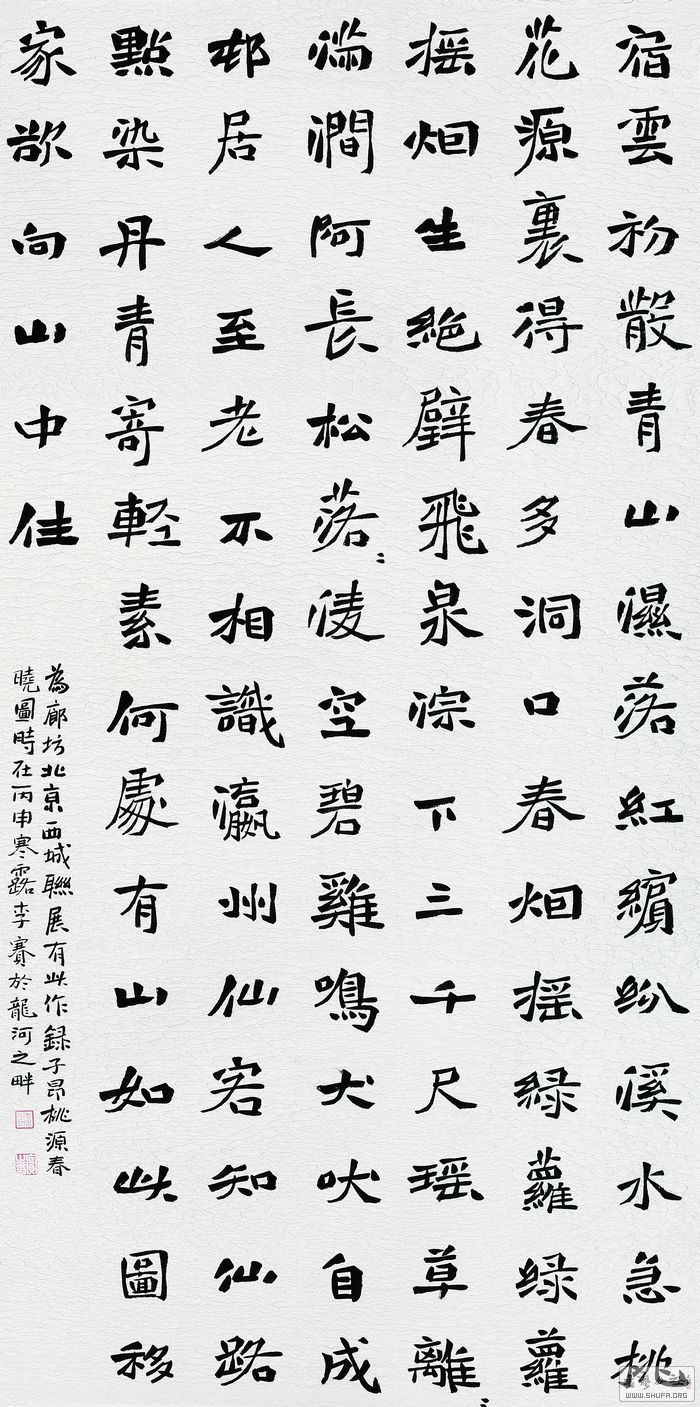 宿雲初散青山濕落紅繽紛溪水急桃
花源裏得春多洞口春烟摇緑蘿绿蘿
摇烟生絶壁飛泉淙下三千尺瑶草離〻
滿澗阿長松落〻凌空碧雞鳴犬吠自成
邨居人至老不相識瀛州仙客知仙路
點染丹青寄輕素何處有山如此圖移
家欲向山中住
為廊坊北京西城聯展有此作録子昂桃源春
曉圖時在丙申寒露李賽於龍河之畔
WWW.SHUFA.ORG